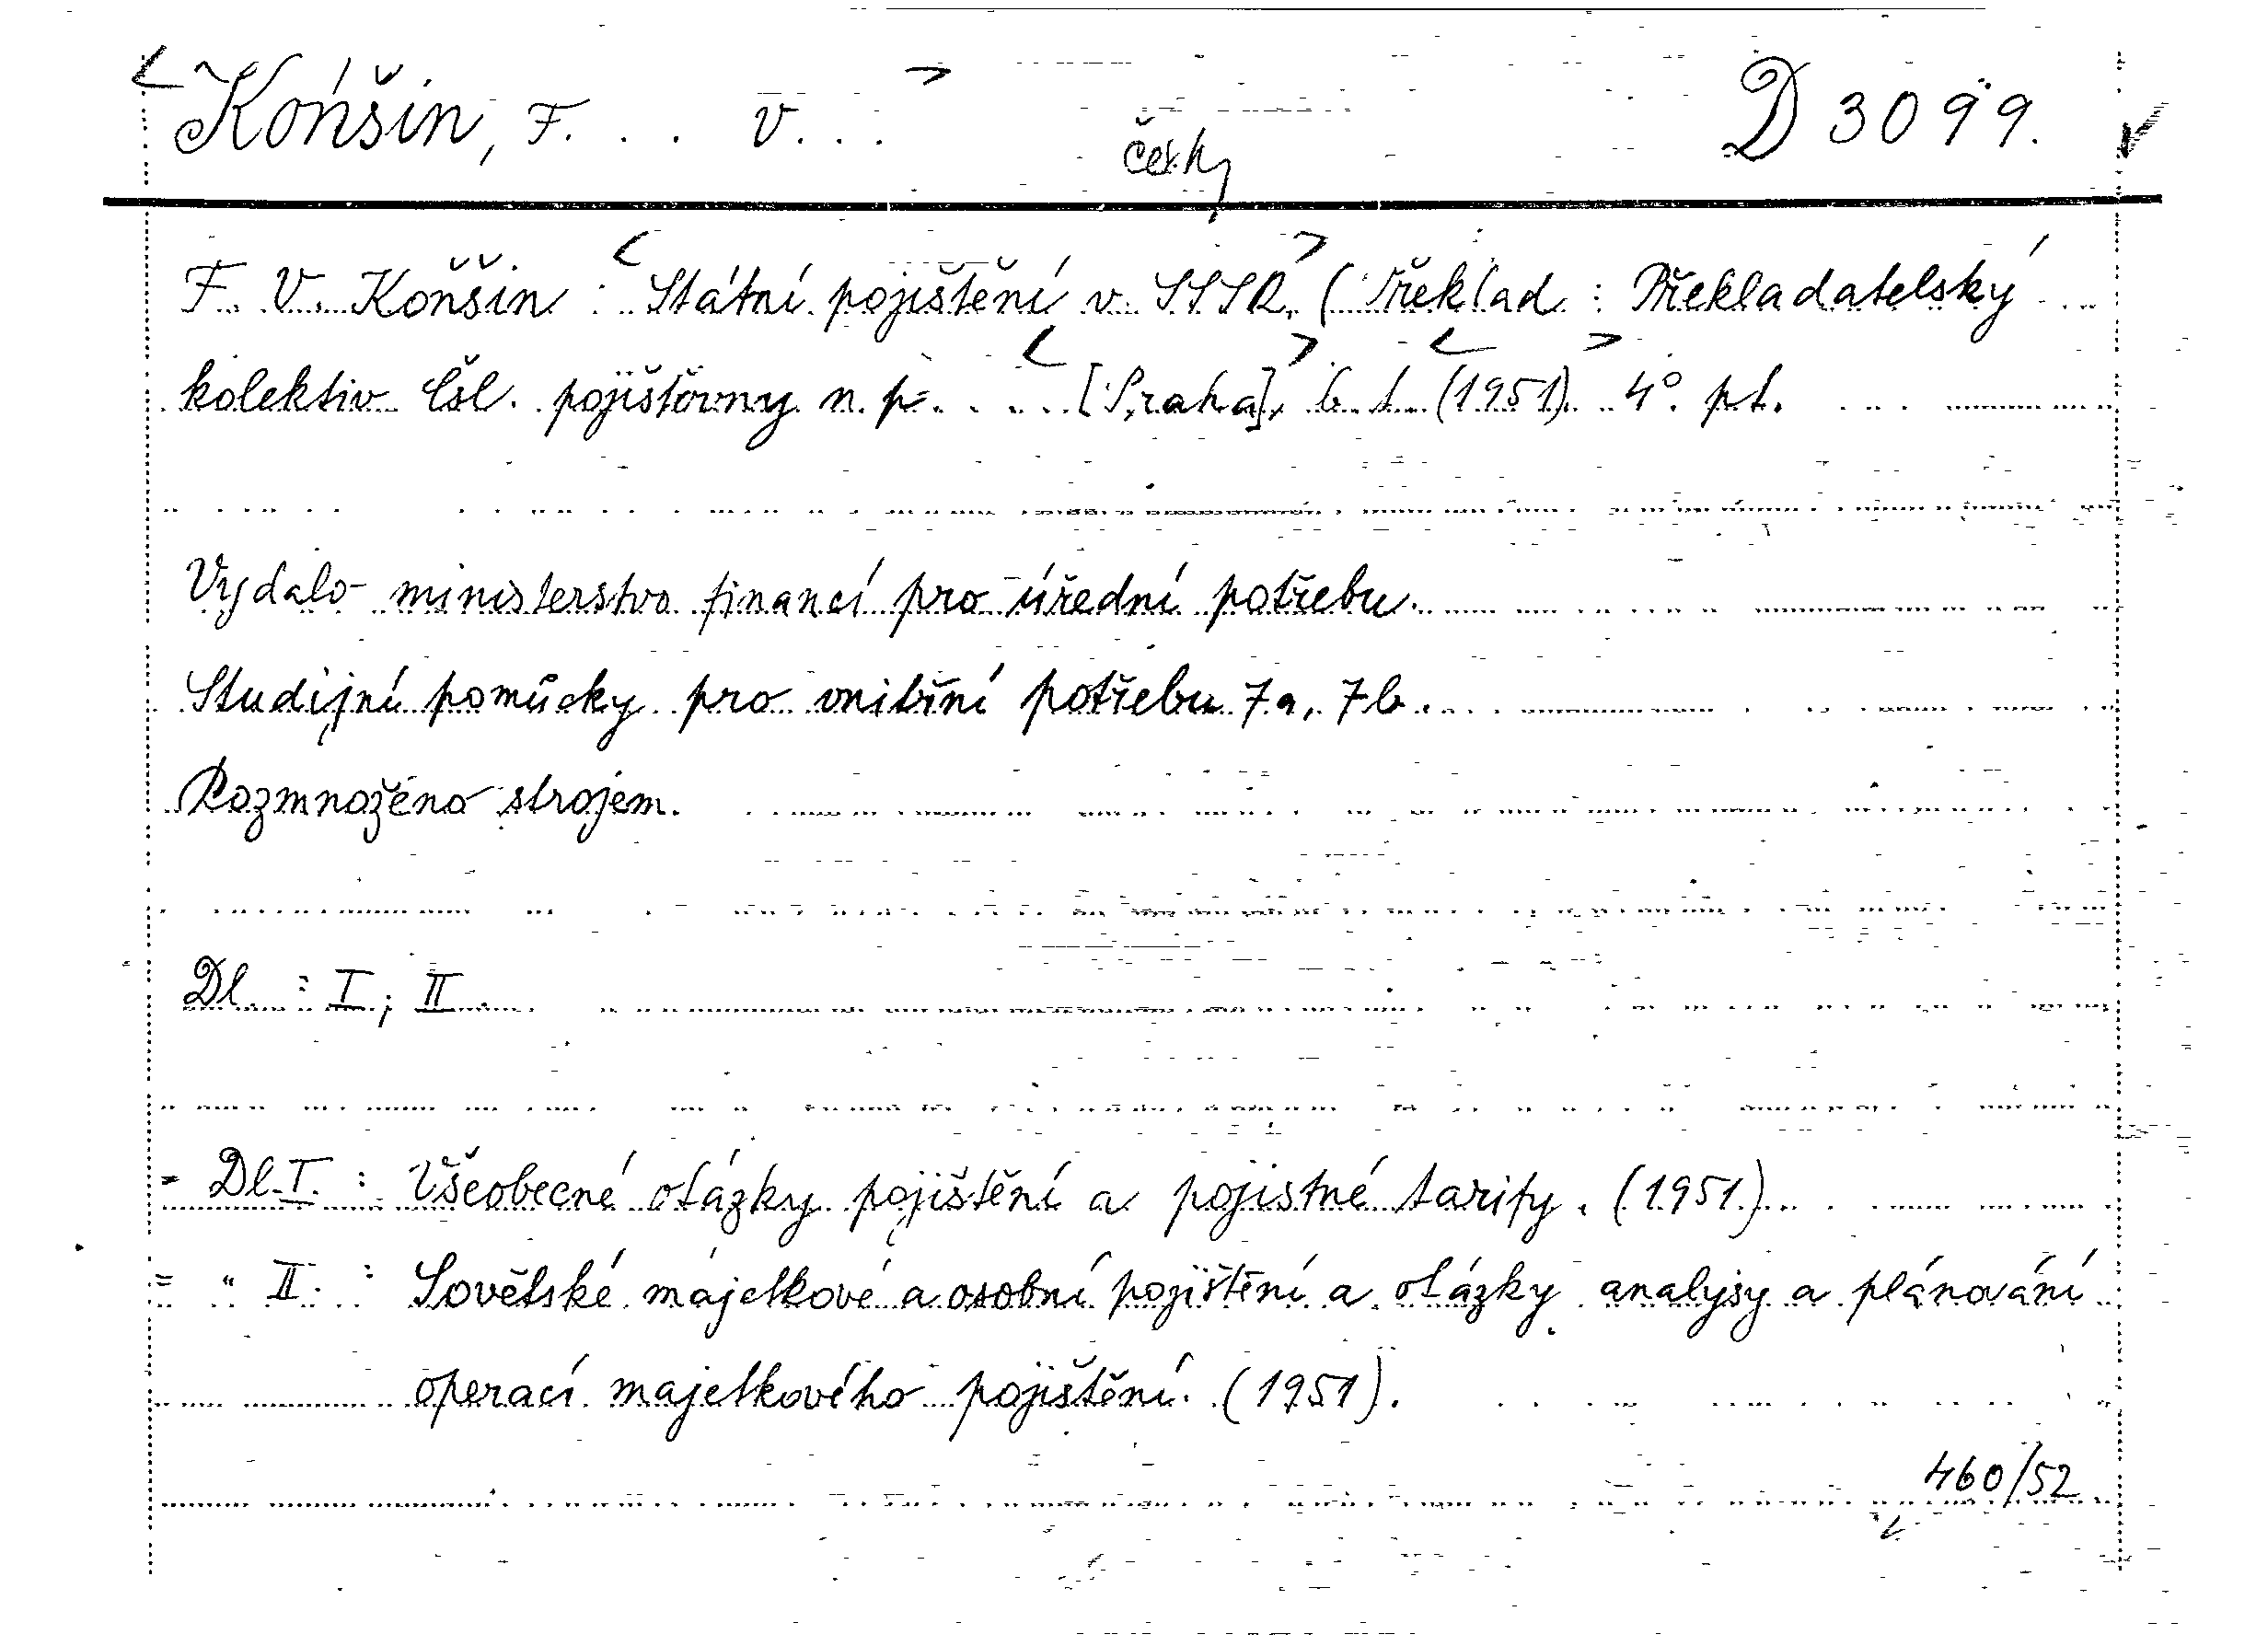 <Końšin, F... V...> D 3099.
česky
F. V. Koňšin : <Státní pojištění v SSSR.> (Překlad : Překladatelský
kolektiv Čsl. pojišťovny n. p. ... <[Praha],> b. t. <(1951).> 4° pt.
Vydalo ministerstvo financí pro úřední potřebu.
Studijní pomůcky pro vnitřní potřebu 7a, 7b.
Rozmnoženo strojem.
Dl. : I ; II.
= Dl. I. : Všeobecné otázky pojištění a pojistné tarify. (1951).
= " II. : Sovětské majetkové a osobní pojištění a otázky analysy a plánování
operací majetkového pojištění. (1951).
460/52